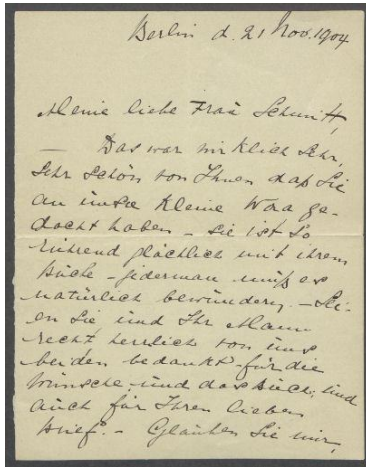 Berlin d. 21 Nov. 1904
Meine liebe Frau Schmitt,
— Das war wirklich sehr,
sehr schön von Ihnen daß Sie
an unsre kleine Waa ge-
dacht haben — sie ist so
rührend glücklich mit ihrem
Buche — jederman muß es
natürlich bewundern. — Sei-
en Sie und Ihr Mann
recht herzlich von uns
beiden bedankt für die
Wünsche und das Buch, und
auch für Ihren lieben
Brief. — Glauben Sie mir,